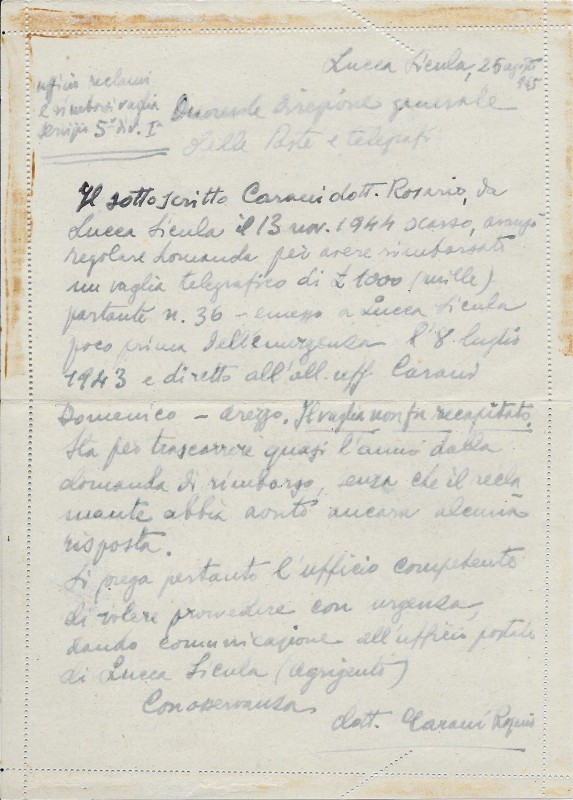 Lucca Sicula, 25 agosto
945
ufficio reclami
e rimborsi vaglia
servizio 5° div. Iª
Onorevole Direzione generale
delle Poste e telegrafi
Il sottoscritto Carani dott. Rosario, da
Lucca Sicula il 13 nov. 1944 scorso, avanzò
regolare domanda per avere rimborsato
un vaglia telegrafico di £ 1000 (mille)
portante n. 36 - emesso a Lucca Sicula
poco prima dell'emergenza l'8 luglio
1943 e diretto all'all. uff. Carani
Domenico - Arezzo. Il vaglia non fu recapitato.
Sta per trascorrere quasi l'anno dalla
domanda di rimborso, senza che il recla
mante abbia avuto ancora alcuna
risposta.
Si prega pertanto l'ufficio competente
di volere provvedere con urgenza,
dando comunicazione all'ufficio postale
di Lucca Sicula (Agrigento)
Con osservanza
dott. Carani Rosario